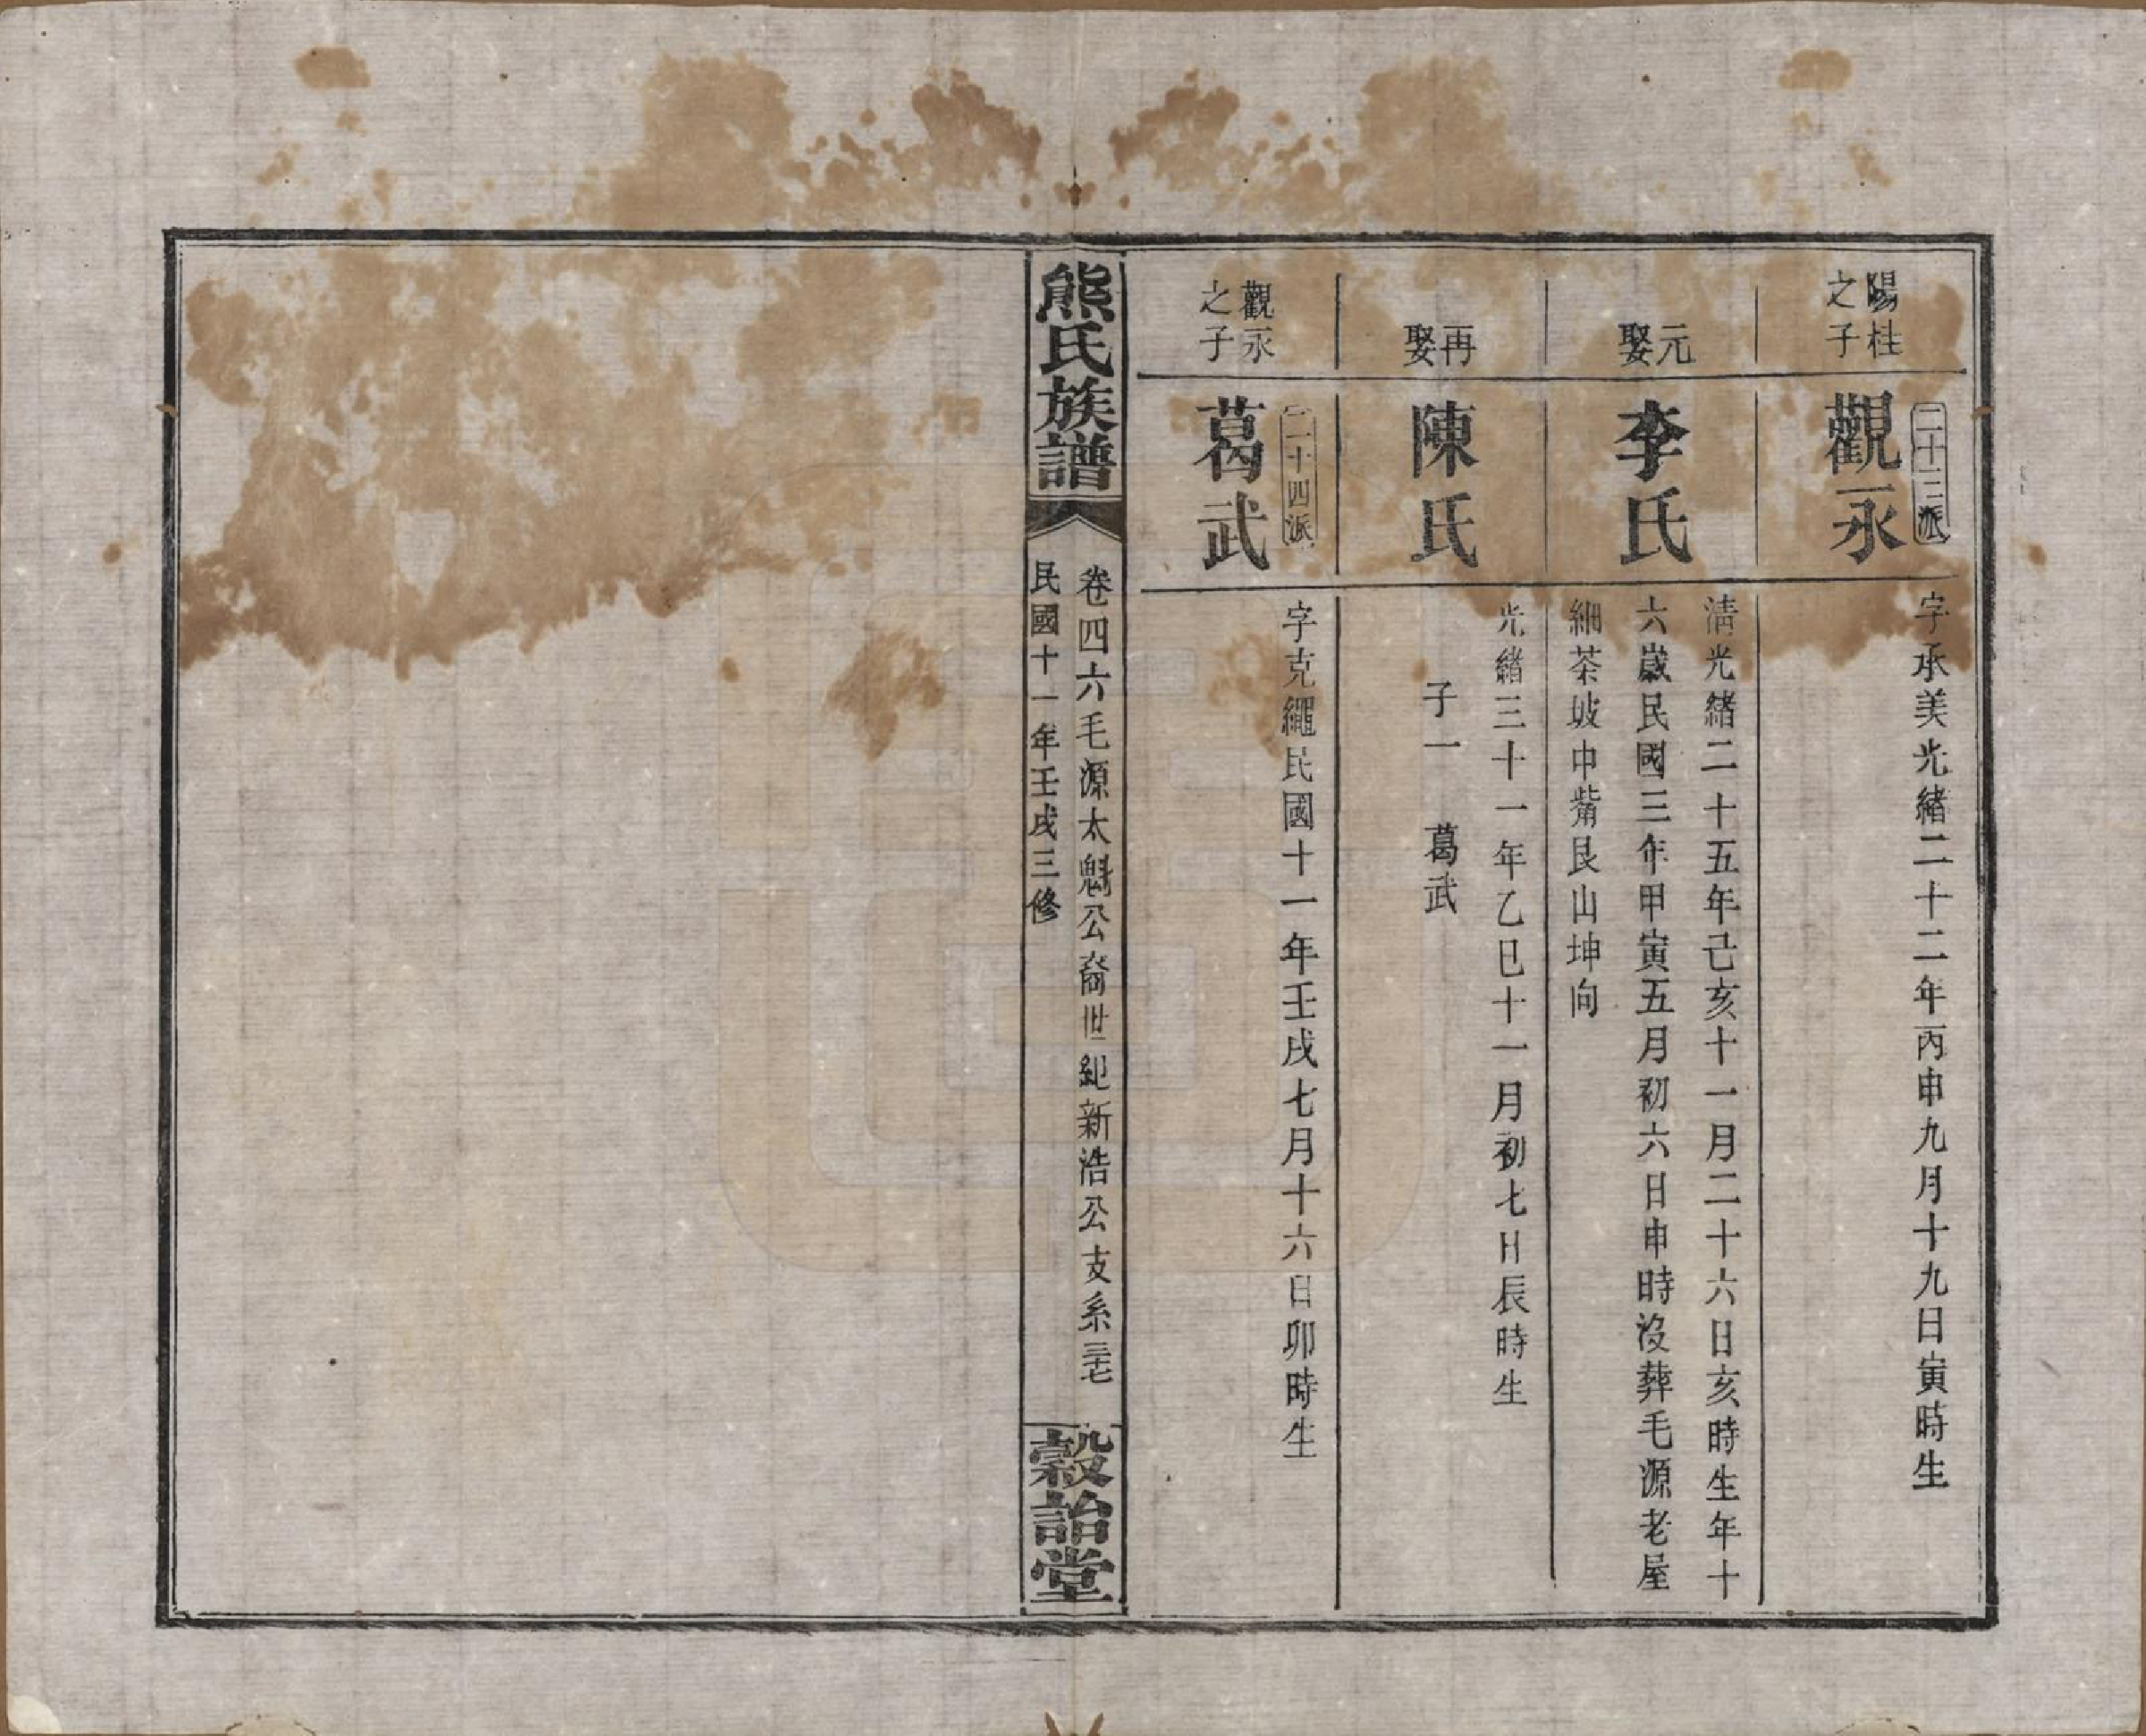 陽桂
之子
二十三派
觀永
字承美光緒二十二年丙申九月十九日寅時生
元
娶
李氏
淸光緒二十五年己亥十一月二十六日亥時生年十
六歲民國三年甲寅五月初六日申時沒葬毛源老屋
細茶坡中觜艮山坤向
再
娶
陳氏
光緒三十一年乙巳十一月初七日辰時生
子一 葛武
觀永
之子
二十四派
葛武
字克繩民國十一年壬戌七月十六日卯時生
熊氏族譜
卷四六毛源太魁公裔世紀新浩公支系三十七
民國十一年壬戌三修
穀詒堂